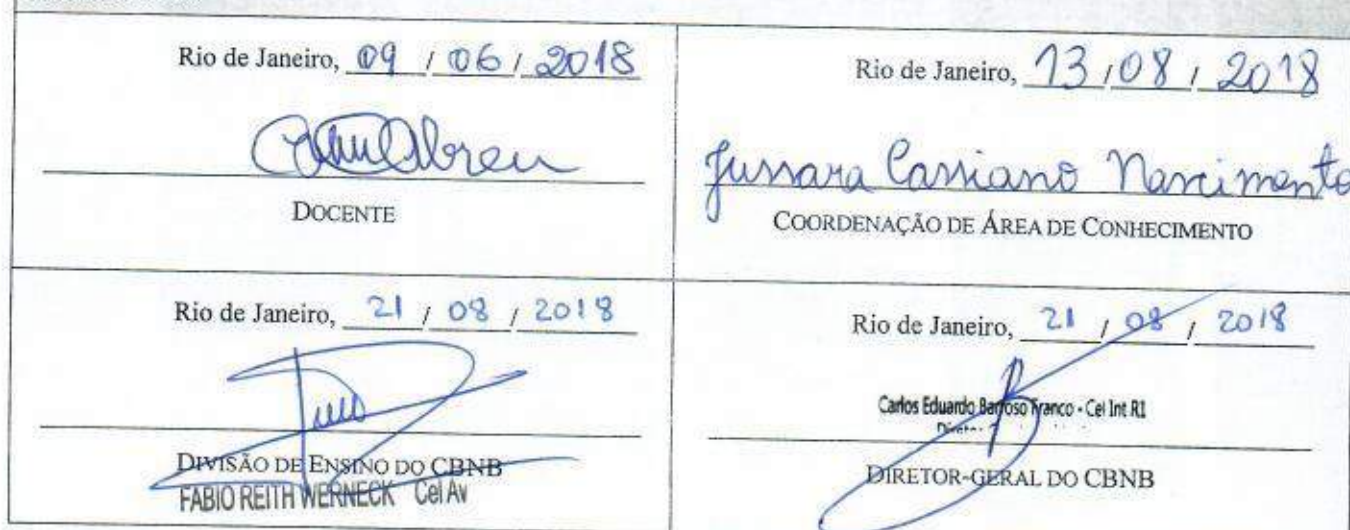 Rio de Janeiro, 09 / 06 / 2018
Abreu
DOCENTE
Rio de Janeiro, 13 / 08 / 2018
Jussara Cassiano Nascimento
COORDENAÇÃO DE ÁREA DE CONHECIMENTO
Rio de Janeiro, 21 / 08 / 2018
DIVISÃO DE ENSINO DO CBNB
FABIO REITH WERNECK Cel Av
Rio de Janeiro, 21 / 08 / 2018
Carlos Eduardo Barroso Franco - Cel Int R1
DIRETOR-GERAL DO CBNB